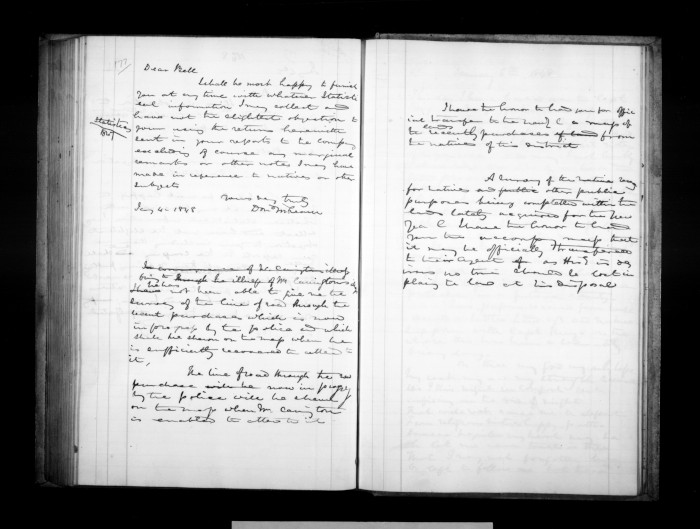 177
Dear Bell
I shall be most happy to furnish
you at any time with whatever Statisti
cal information I may collect and
have not the slightest objection to
your using the returns herewith
sent in your reports to the Company
excluding of course any marginal
remarks or other notes I may have
made in reference to natives or other
subjects
Statistics
Yours very truly
Jany 4th 1848
Don McLean
In consequence of
the illness of Mr Carrington
not been able to give me the
survey of the line of road through the
recent purchases which is now
in progress by the police and which
shall be shewn on the map when he
is sufficiently recovered to attend to
it,
The line of road through the
purchase will be now in progress
by the police will be shewn
on the map when Mr Carington
is enabled to attend to it
I have the honor to hand you for offic
ial transfer to the New Z C a map of
the lands recently purchased from
the natives of this district
A survey of the natives
for natives and public other public
purposes being completed within the
lands lately acquired for the New
Zea C I have the honor to hand
you the map that
it may be officially transferred
to their Agent
no time should be lost in
placing the land at his disposal